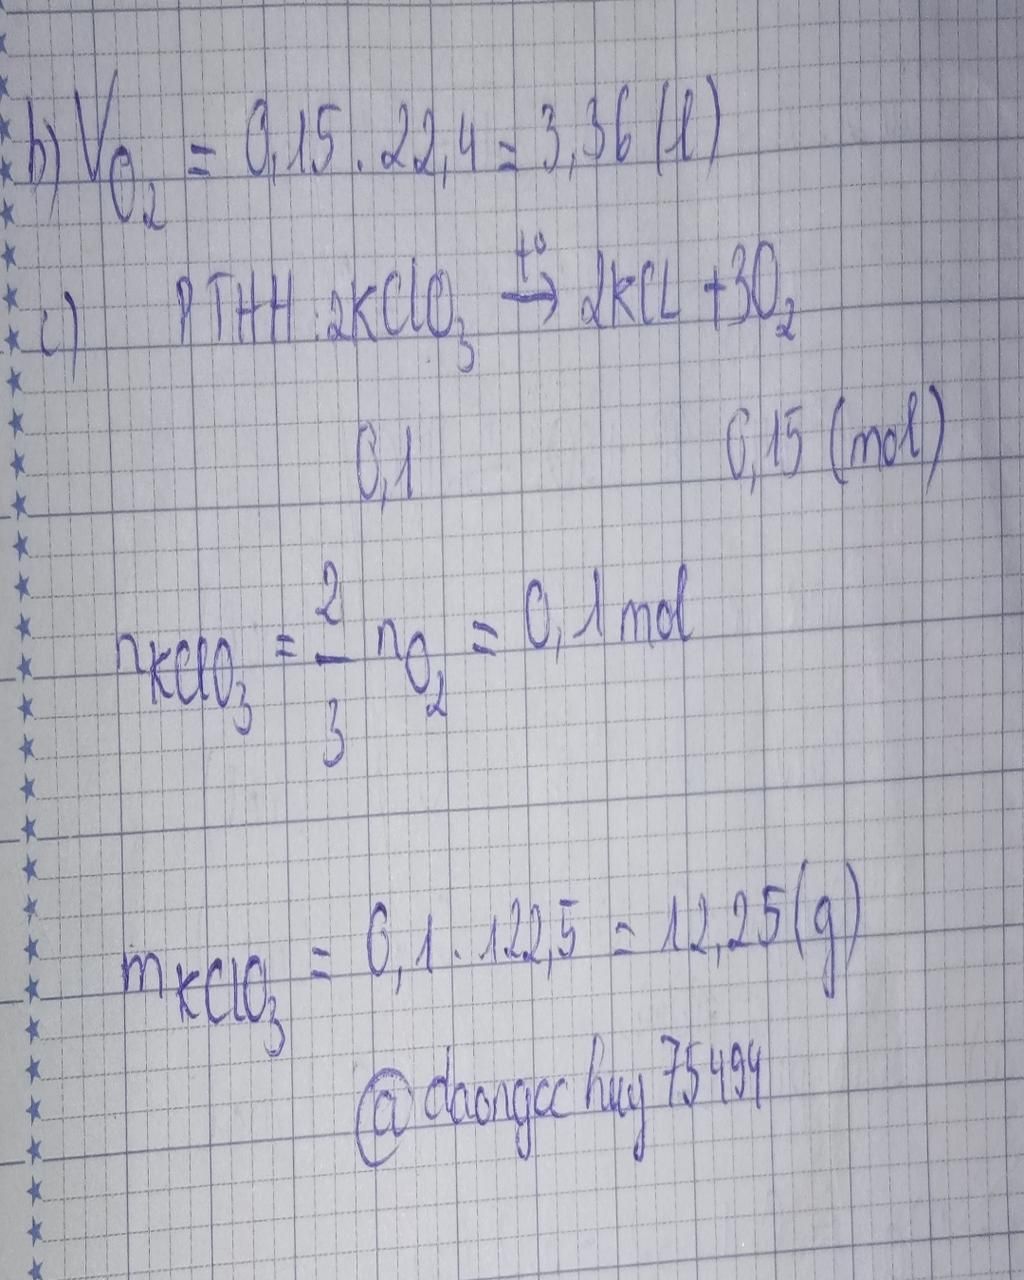 b) V_{O_2} = 0,15 . 22,4 = 3,36 (l)
c) PTHH : 2KClO_3 \xrightarrow{t^o} 2KCl + 3O_2
0,1 0,15 (mol)
n_{KClO_3} = \frac{2}{3} n_{O_2} = 0,1 mol
m_{KClO_3} = 0,1 . 122,5 = 12,25 (g)
@daongcc huy 75494